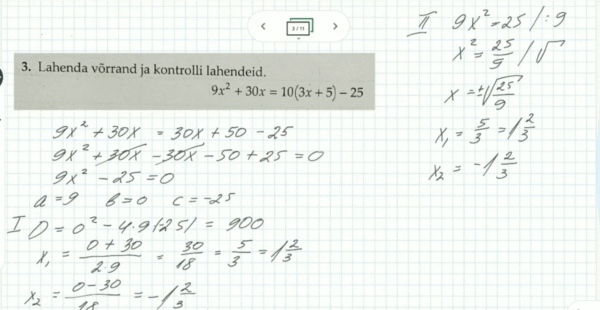 8 / 11
3. Lahenda võrrand ja kontrolli lahendeid.
9x² + 30x = 10(3x + 5) − 25
9x² + 30x = 30x + 50 − 25
9x² + 30x − 30x − 50 + 25 = 0
9x² − 25 = 0
a = 9 b = 0 c = −25
I D = 0² − 4·9(25) = 900
x₁ = (0 + 30)/(2·9) = 30/18 = 5/3 = 1 2/3
x₂ = (0 − 30)/18 = −1 2/3
II 9x² = 25 /:9
x² = 25/9 /√
x = ±√(25/9)
x₁ = 5/3 = 1 2/3
x₂ = −1 2/3